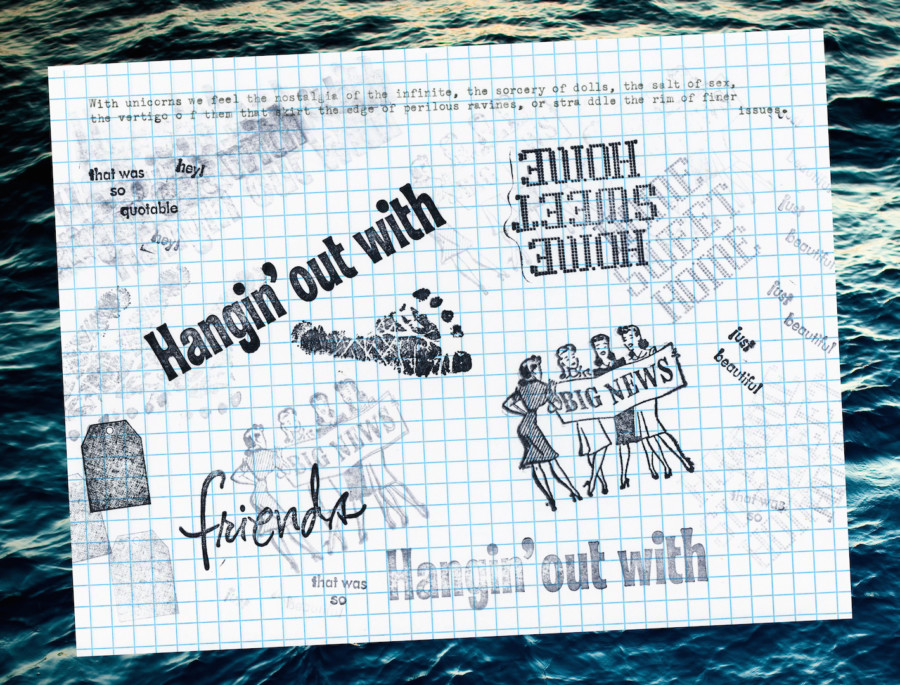 With unicorns we feel the nostalgia of the infinite, the sorcery of dolls, the salt of sex,
the vertigo o f them that skirt the edge of perilous ravines, or stra ddle the rim of finer
issues.
that was
so
quotable
hey!
hey!
Hangin' out with
HOME
SWEET
HOME
HOME
SWEET
HOME
just
beautiful
just
beautiful
just
beautiful
BIG NEWS
BIG NEWS
friends
that was
so
that was
so
Hangin' out with